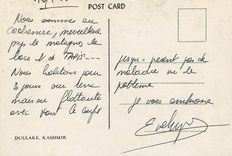 POST CARD
Nous sommes au
Cachemire, merveilleux
pays de montagnes
lacs et de TAPIS---
Nous habitons pour
3 jours sur une
maison flottante
avec tout le confort
jusqu'à présent pas de
maladie ni de
problème
je vous embrasse
Evelyne
DULLAKE, KASHMIR